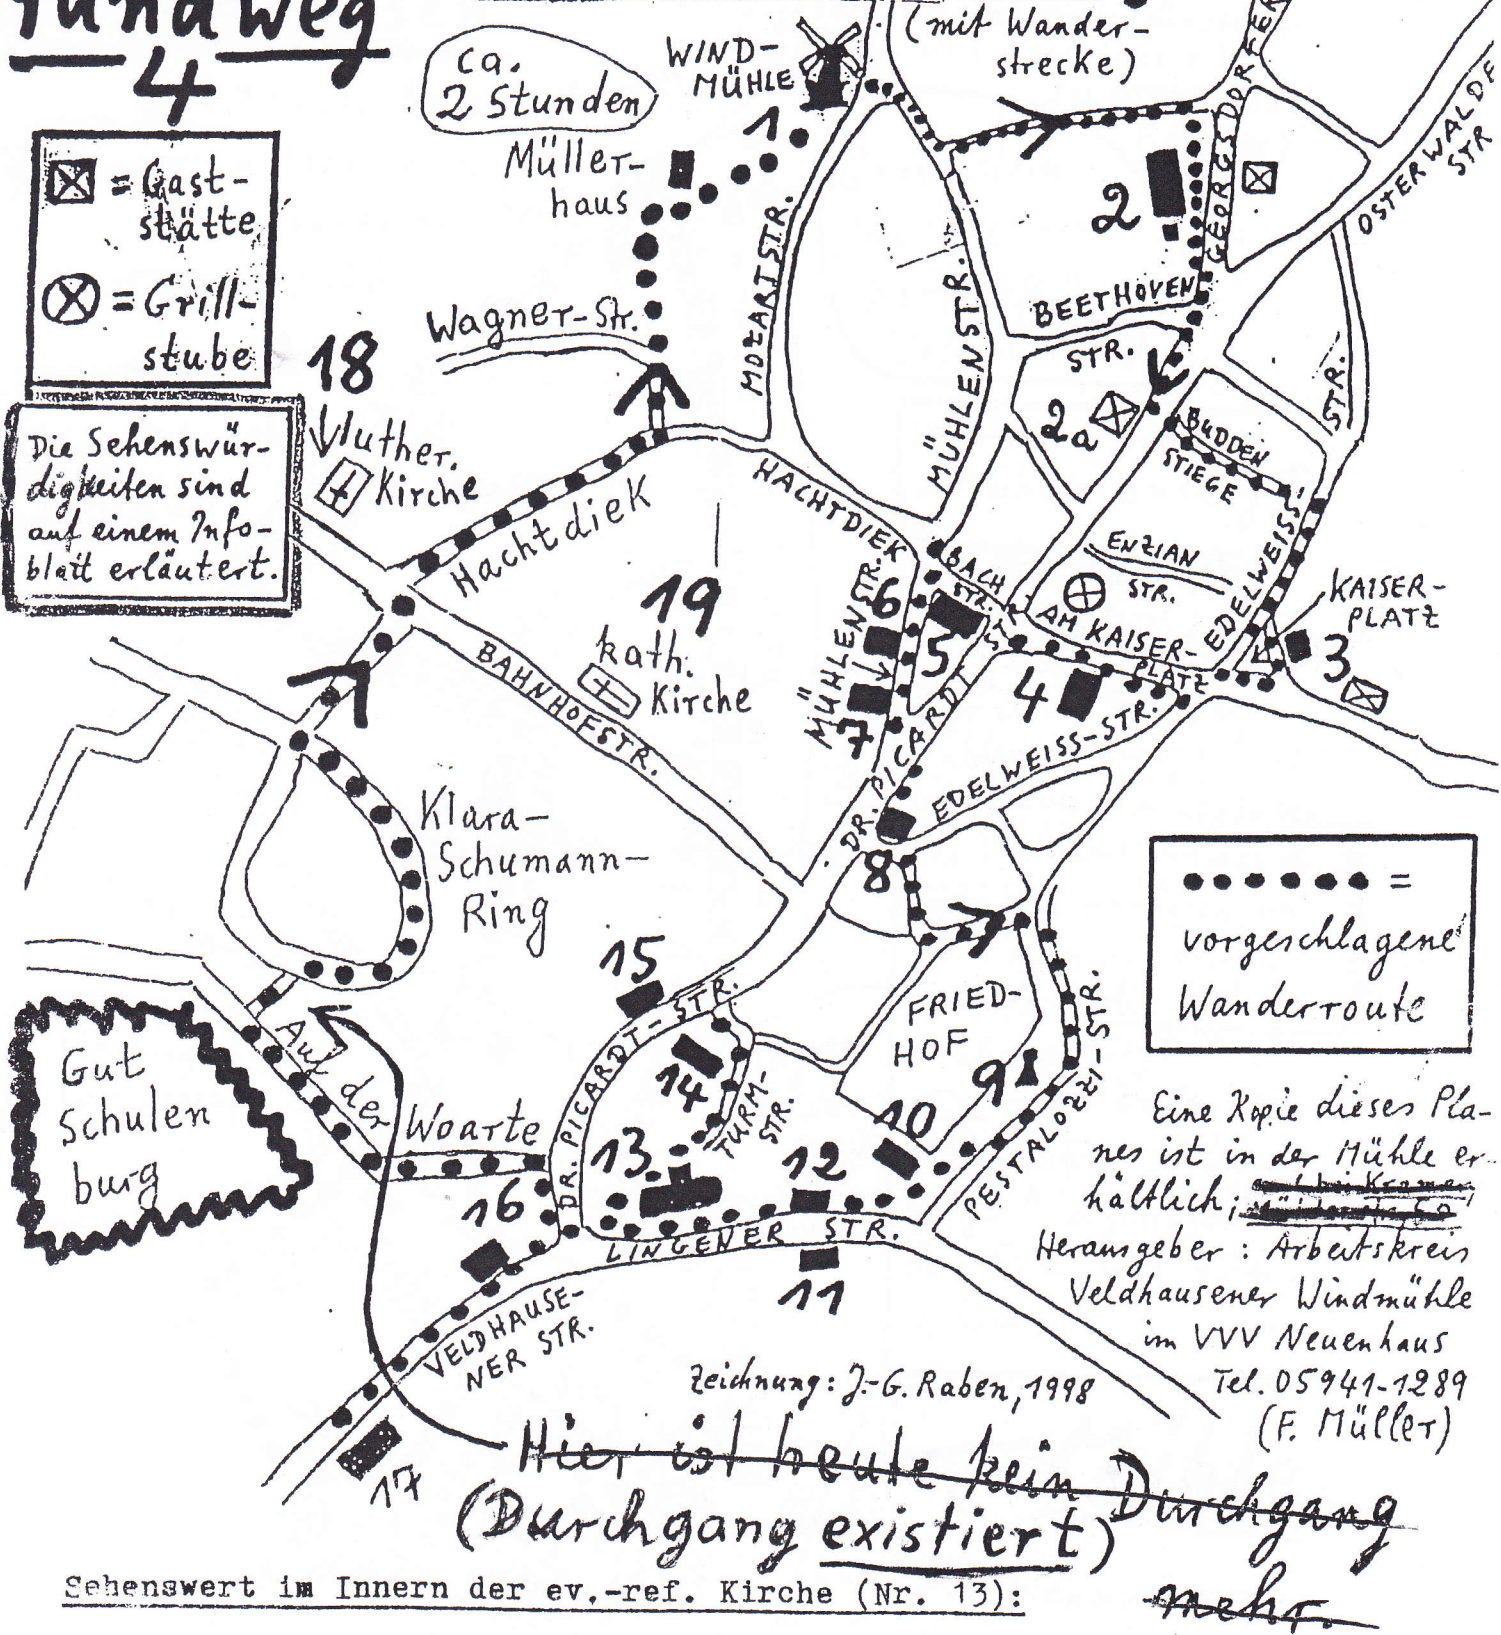 rundweg
4
(mit Wander-
strecke)
ca.
2 Stunden
WIND-
MÜHLE
1
Müller-
haus
= Gast-
stätte
= Grill-
stube
Die Sehenswür-
digkeiten sind
auf einem Info-
blatt erläutert.
18
luther.
Kirche
Wagner-Str.
MOZARTSTR.
MÜHLENSTR.
2
GEORGSDORFER
OSTERWALDE
STR
BEETHOVEN
STR.
2a
BUDDEN
STIEGE
STR.
EDELWEISS
HACHTDIEK
Hachtdiek
BACH
STR.
ENZIAN
STR.
AM KAISER-
PLATZ
KAISER-
PLATZ
3
19
kath.
Kirche
MÜHLENSTR.
6
5
7
4
BAHNHOFSTR.
DR. PICARDT STR
EDELWEISS-STR.
8
Klara-
Schumann-
Ring
=
vorgeschlagene
Wanderroute
15
FRIED-
HOF
9
10
PESTALOZZI-STR.
DR. PICARDT-STR.
14
TURM-
STR.
13
12
Gut
Schulen
burg
Auf der
Woarte
16
LINGENER STR.
11
VELDHAUSE-
NER STR.
17
Eine Kopie dieses Pla-
nes ist in der Mühle er-
hältlich;
Herausgeber: Arbeitskreis
Veldhausener Windmühle
im VVV Neuenhaus
Tel. 05941-1289
(F. Müller)
Zeichnung: J.-G. Raben, 1998
Hier ist heute kein Durchgang
mehr.
(Durchgang existiert)
Sehenswert im Innern der ev.-ref. Kirche (Nr. 13):